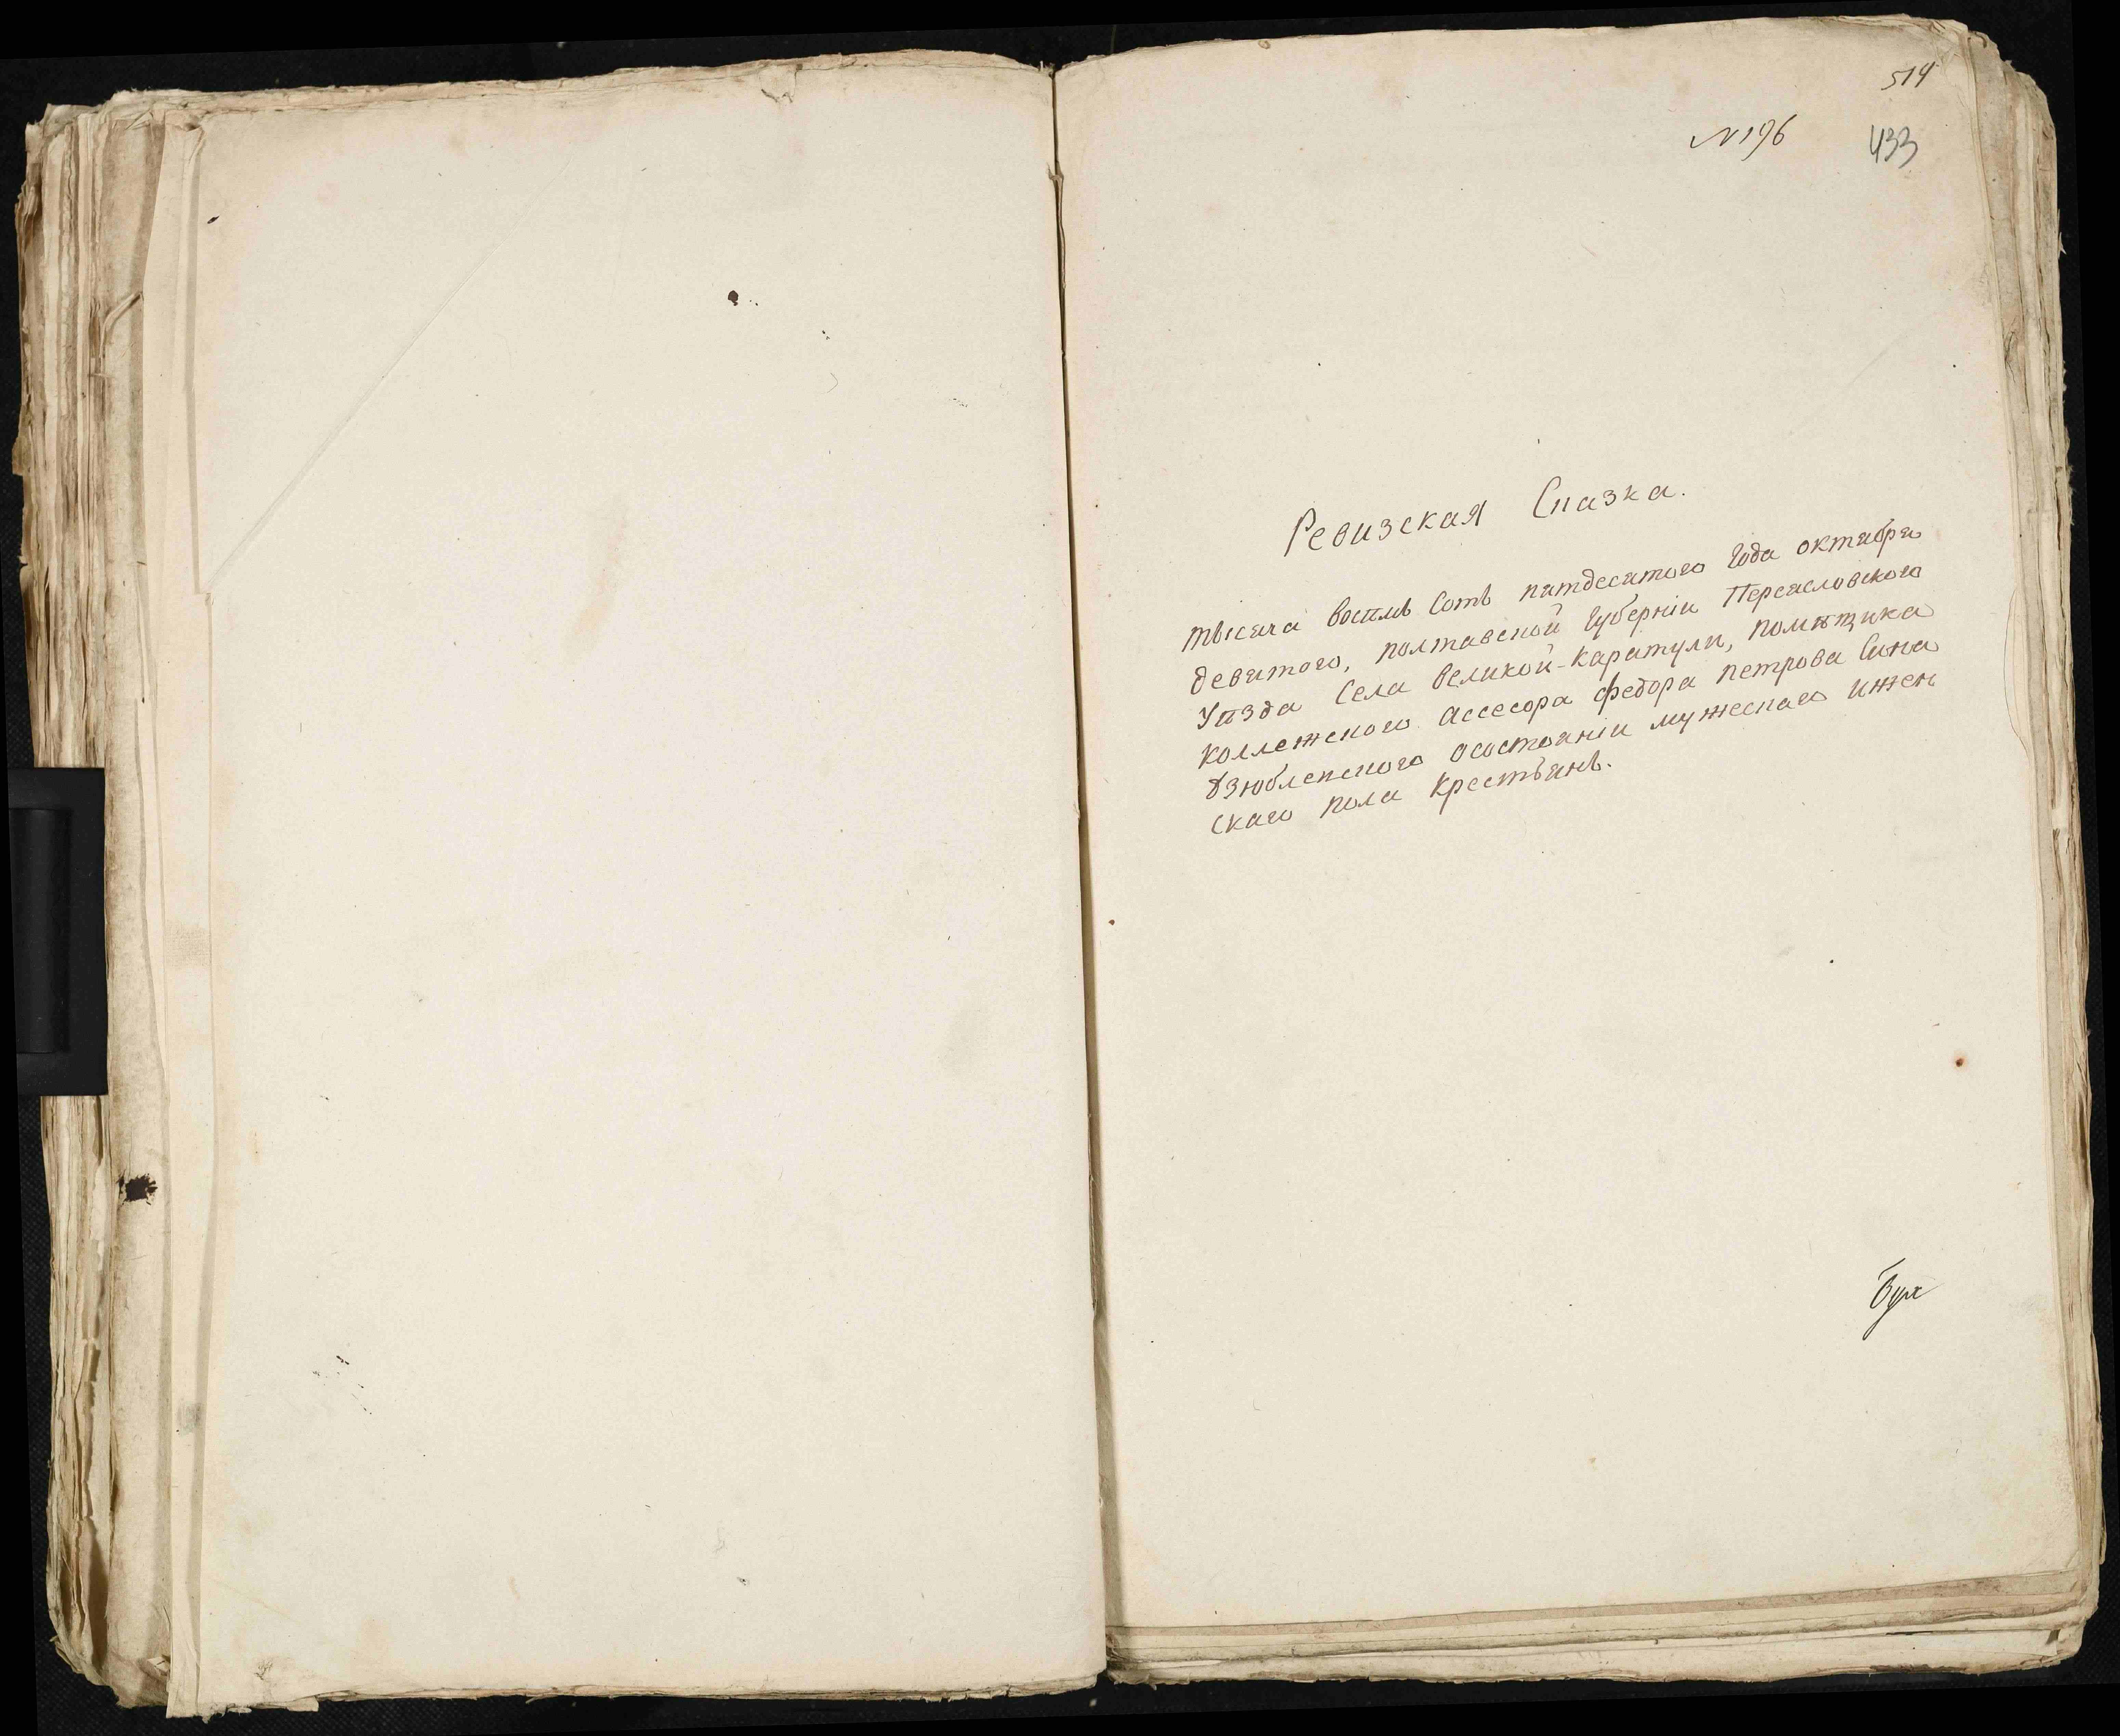 514
N 196 433
Ревизская Сказка.
тысяча восимь Сотъ пятдесятого года октября
девятого, полтавской губерніи Переясловского
Уѣзда Села великой-каратули, помѣщика
коллежского Ассесора федора петрова Сина
Дзюблевского осостояніи мужескаго ижен
скаго пола крестьянъ.